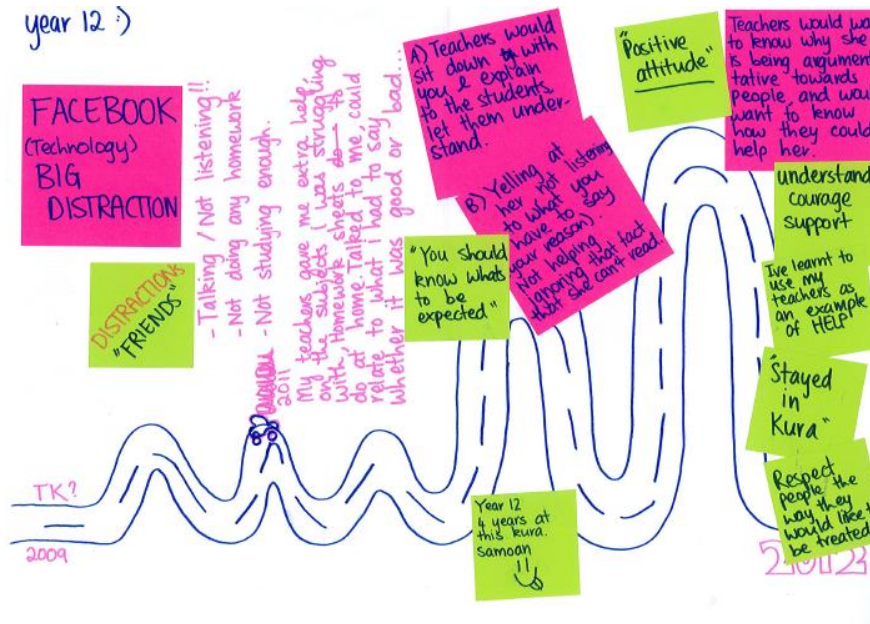 year 12 :)
FACEBOOK
(Technology)
BIG
DISTRACTION
DISTRACTIONS
"FRIENDS"
- Talking / Not listening!!
- Not doing any homework
- Not studying enough.
2011
My teachers gave me extra help,
on the subjects i was struggling
with, Homework sheets to
do at home. Talked to me, could
relate to what i had to say
whether it was good or bad...
A) Teachers would
sit down with
you & explain
to the students.
let them under-
stand.
B) Yelling at
her not listening
to what you
have to say
(your reason).
Not helping
Ignoring that fact
that she can't read.
"You should
know whats
to be
expected"
"Positive
attitude"
Teachers would
to know why she
is being argumen
tative towards
people, and
want to know
how they could
help her.
understand
courage
support
Ive learnt to
use my
teachers as
an example
of HELP
"Stayed
in
Kura"
Respect
people the
way they
would like t
be treated
TK?
2009
Year 12
4 years at
this kura.
samoan
2012